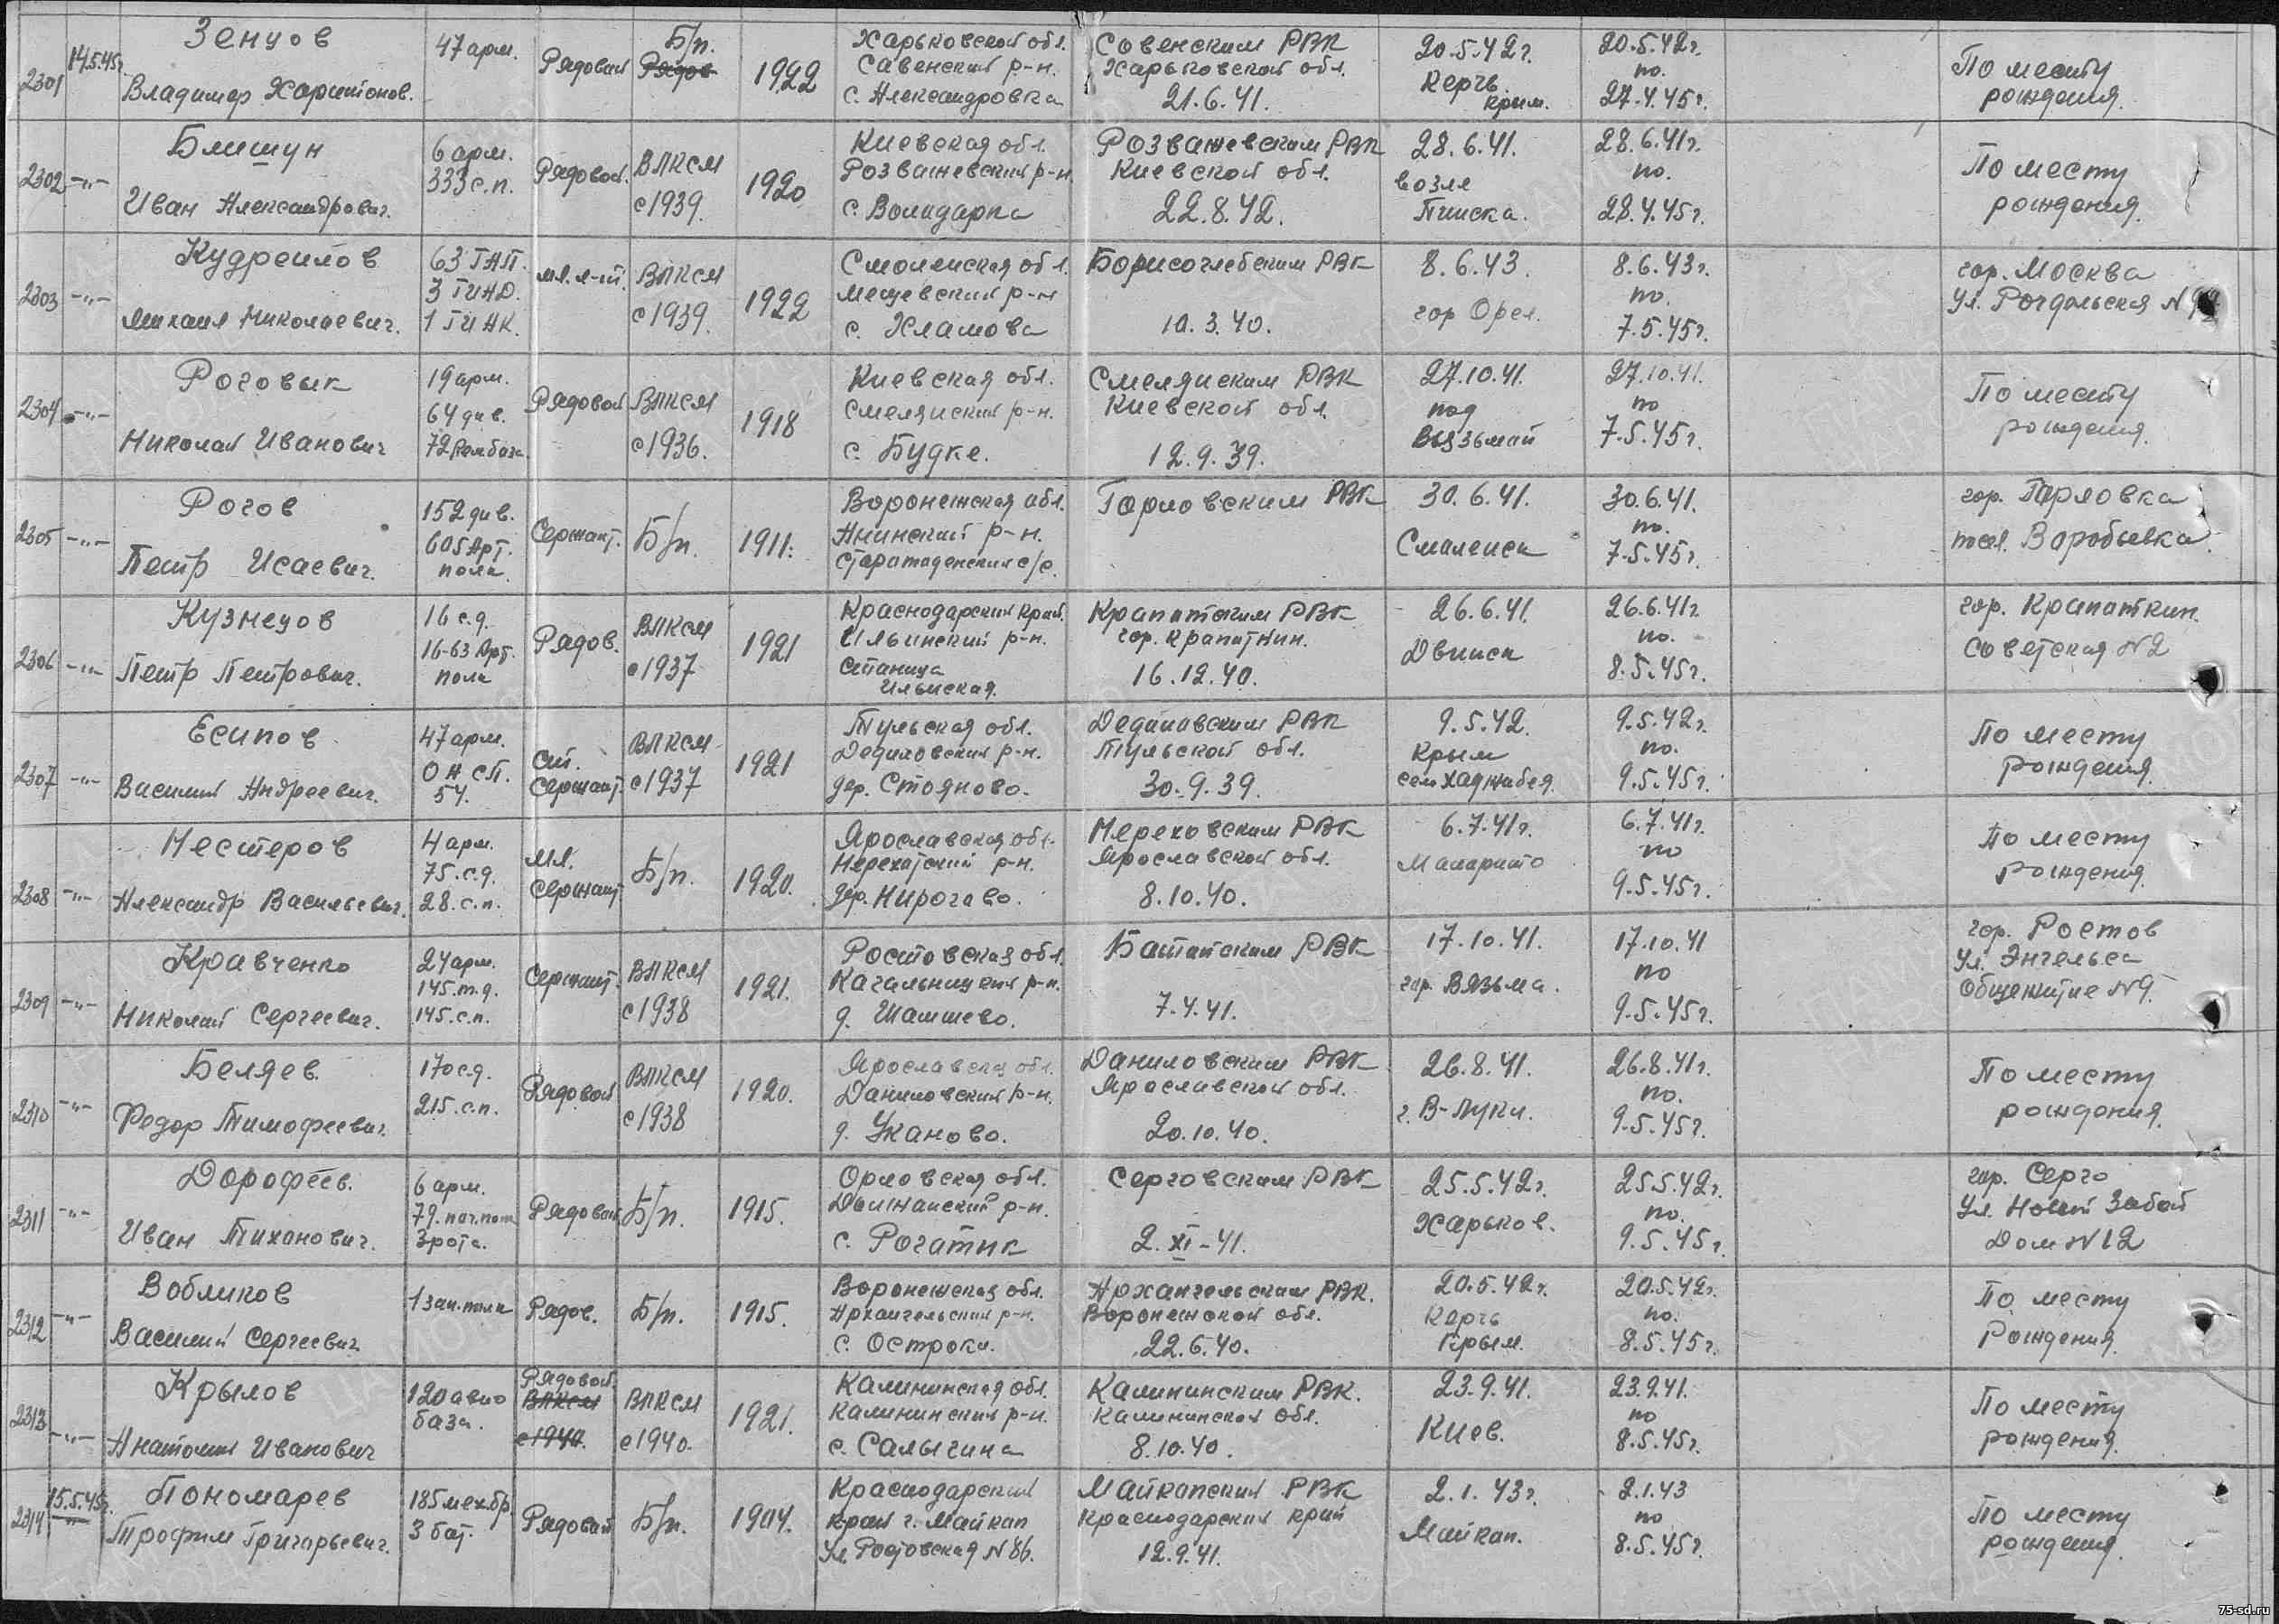 2301
14.5.45г.
Зенцов
Владимир Харитонов.
47 арм.
Рядовой
Б/п.
Рядов
1922
Харьковской обл.
Савенский р-н.
с. Александровка
Совенским РВК
Харьковской обл.
21.6.41.
20.5.42г.
Керчь.
Крым.
20.5.42г.
по.
27.4.45г.
По месту
рождения.
2302
-"-
Блишун
Иван Александрович.
6 арм.
333 с.п.
Рядовой.
ВЛКСМ
с 1939.
1920
Киевская обл.
Розважевский р-н.
с. Володарка
Розважевским РВК
Киевской обл.
22.8.42.
28.6.41.
возле
Пинска.
28.6.41г.
по.
28.4.45г.
По месту
рождения.
2303
-"-
Михаил Николаевич.
63 ГАП.
1 ГИАК.
мл. л-т.
ВЛКСМ
с 1939.
1922
Смоленская обл.
Мещевский р-н
с. Хламова
Борисоглебским РВК
10.3.40.
8.6.43.
гор Орел.
8.6.43г.
по.
7.5.45г.
гор. Москва
ул. Рочдольская
2304
-"-
Роговык
Николай Иванович
19 арм.
64 див.
72 рембаза
Рядовой
ВЛКСМ
с 1936.
1918
Киевская обл.
Смелянский р-н.
с. Будке.
Смелянским РВК
Киевской обл.
12.9.39.
27.10.41.
под
Вязьмай
27.10.41.
по
7.5.45г.
По месту
рождения.
2305
-"-
Рогов
Петр Исаевич.
152 див.
605 Арт.
полк.
Сержант.
Б/п.
1911.
Воронежская обл.
Анинский р-н.
Горловским РВК
30.6.41.
Смоленск
30.6.41.
по.
7.5.45г.
гор. Горловка
посел. Воробьевка.
2306
-"-
Кузнецов
Петр Петрович.
16 с.д.
16-63 Арт.
полк
Рядов.
ВЛКСМ
с 1937
1921
Краснодарский край.
Ильинский р-н.
станица
Ильиская.
Крапаткин РВК
гор. Крапаткин.
16.12.40.
26.6.41.
Двинск
26.6.41г.
по.
8.5.45г.
гор. Крапаткин.
Советская N 2
2307
-"-
Есипов
Василий Андреевич.
47 арм.
О Н СП.
54.
Ст.
Сержант.
ВЛКСМ
с 1937
1921
Тульская обл.
Дедиловский р-н.
дер. Стояново.
Дедилавским РВК
Тульской обл.
30.9.39.
9.5.42.
Крым
сем Хаджибея
9.5.42г.
по.
9.5.45г.
По месту
рождения.
2308
-"-
Нестеров
Александр Васильевич.
4 арм.
75.с.д.
28.с.п.
мл.
Сержант
Б/п.
1920.
Ярославская обл.
Нерехатский р-н.
дер. Нирогаво.
Нереховским РВК
Ярославской обл.
8.10.40.
6.7.41г.
Малорито
6.7.41г.
по
9.5.45г.
По месту
рождения.
2309
-"-
Кравченко
Николай Сергеевич.
24 арм.
145.т.д.
145.с.п.
Сержант.
ВЛКСМ
с 1938
1921.
Ростовская обл.
Кагальницкий р-н.
д. Шамшево.
Батайским РВК
7.4.41.
17.10.41.
гор. Вязьма.
17.10.41
по
9.5.45г.
гор. Ростов
ул. Энгельса
Общежитие N 9.
2310
-"-
Беляев.
Федор Тимофеевич.
170 с.д.
215.с.п.
Рядовой
ВЛКСМ
с 1938
1920.
Ярославская обл.
Даниловский р-н.
д. Уканово.
Даниловским РВК
Ярославской обл.
20.10.40.
26.8.41.
г. В-Луки.
26.8.41г.
по.
9.5.45г.
По месту
рождения.
2311
-"-
Дорофеев.
Иван Тиханович.
6 арм.
3 рота.
Рядовой
Б/п.
1915.
Орловская обл.
Должанский р-н.
с. Рогатик
Серговским РВК
2.XI-41.
25.5.42г.
Харьков.
25.5.42г.
по.
9.5.45г.
гор. Серго
ул. Новый Забой
Дом N 12
2312
-"-
Вобликов
Василий Сергеевич
1 зап. полк
Рядов.
Б/п.
1915.
Воронежская обл.
Архангельский р-н.
с. Остроки.
Архангельским РВК.
Воронежской обл.
22.6.40.
20.5.42г.
Керчь
Крым.
20.5.42г.
по.
8.5.45г.
По месту
Рождения.
2313
-"-
Крылов
Анатолий Иванович
120 авио
база.
Рядовой.
ВЛКСМ
с 1940.
ВЛКСМ
с 1940.
1921.
Калининская обл.
Калининский р-н.
с. Салыгина
Калининским РВК.
Калининской обл.
8.10.40.
23.9.41.
Киев.
23.9.41.
по
8.5.45г.
По месту
рождения.
2314
15.5.45г.
-"-
Пономарев
Трофим Григорьевич.
185 мех.бр.
3 бат.
Рядовой
Б/п.
1904.
Краснодарский
край г. Майкап
ул. Ростовская N 86.
Майкапский РВК
Краснодарский край
12.9.41.
2.1.43г.
Майкап.
2.1.43
по
8.5.45г.
По месту
рождения.
75-sd.ru